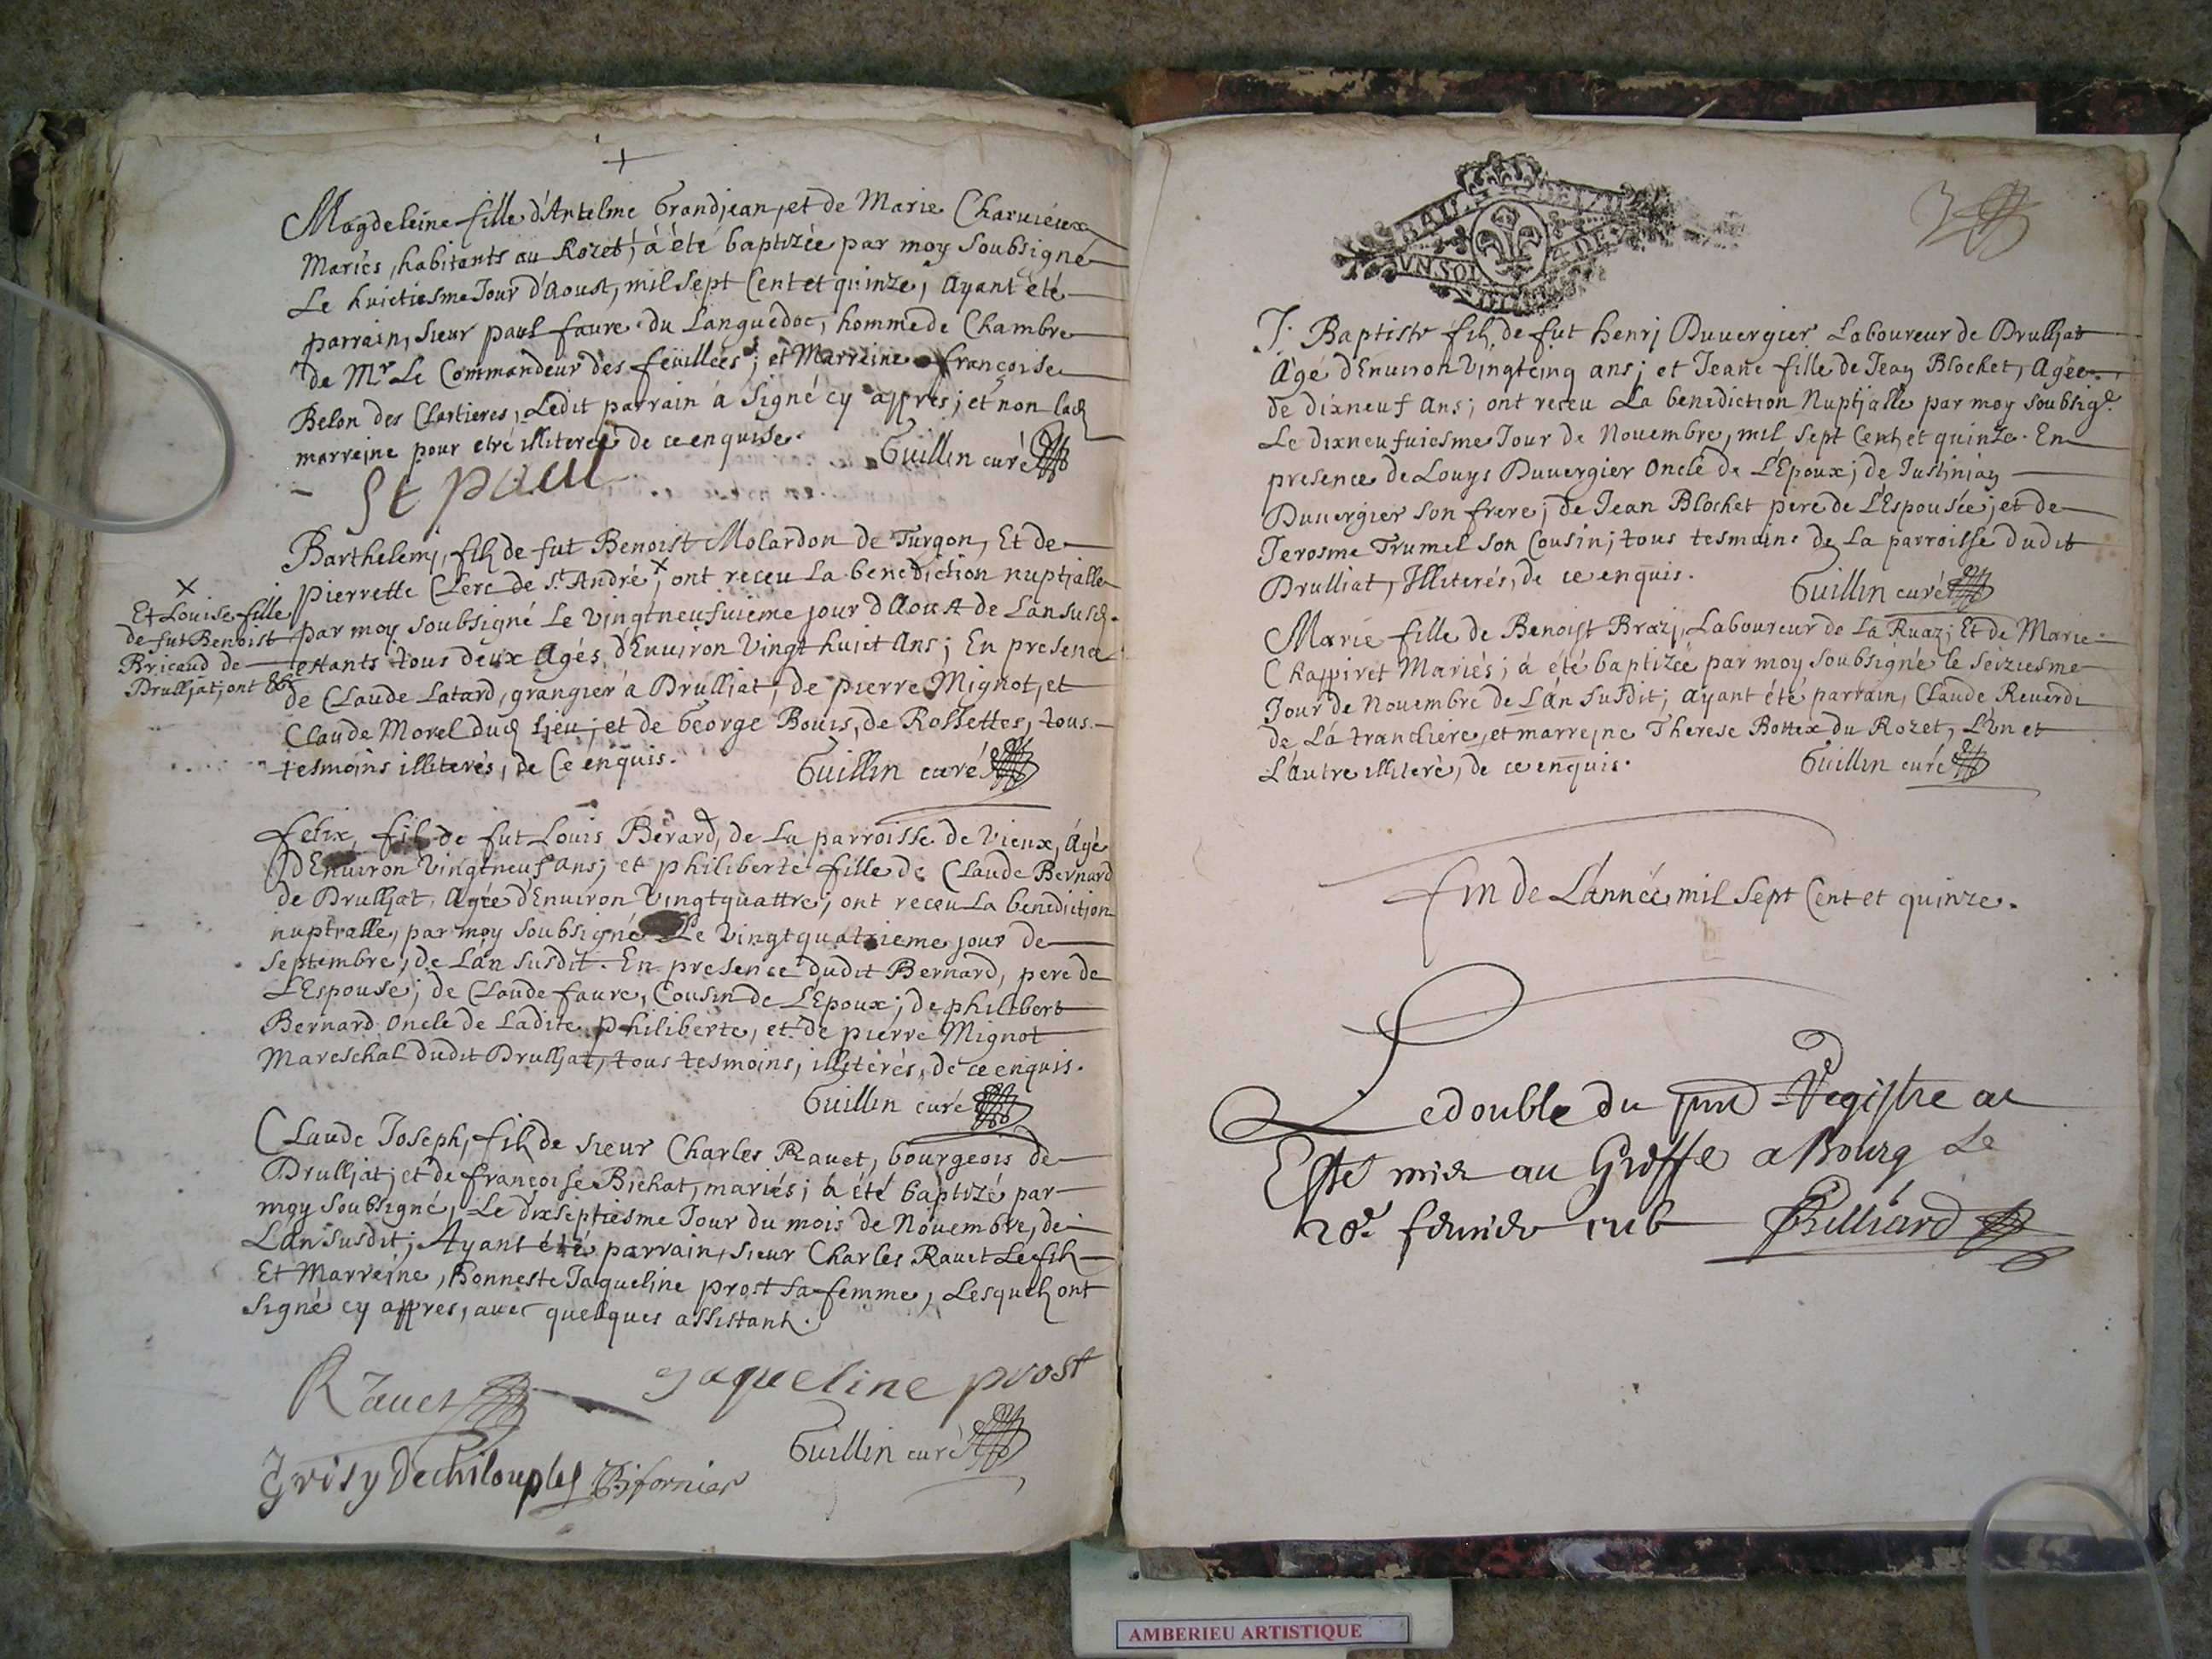 Magdeleine fille d'Antelme Grandjean, et de Marie Charuieux
Mariés, habitants au Rozet, à été baptizée par moy soubsigné
Le huictiesme Jour d'Aoust, mil sept Cent et quinze, Ayant été
parrain, sieur paul faure du Languedoc, homme de Chambre
de Mr Le Commandeur des feüillées; et Marreine françoise
Belon des Clartieres, Ledit parrain á signé cy appres; et non lad
marreine pour etre illiterée de ce enquise.
Guillin curé
St paul
Barthelemj, fils de fut Benoist Molardon de Turgon, Et de
Pierrette Clerc de St André, × ont receu La benediction nuptjalle
par moy soubsigné Le vingtneufuieme jour d'Aoust de L'an susd.
estants tous deux Agés, d'Enuiron Vingt huict Ans; En presence
de Claude Latard, grangier à Drulljat; de pierre Mignot, et
Claude Morel dud Ljeu; et de George Bouis, de Rossettes, tous
tesmoins illiterés, de Ce enquis.
Guillin curé
×
Et Louise fille
de fut Benoist
Bricaud de
Drulljat; ont &c
felix, fils de fut Louis Bérard, de La parroisse de Vieux, Agé
d'Enuiron Vingtneuf ans; et philiberte fille de Claude Bernard
de Drulljat, Agée d'Enuiron Vingtquattre; ont receu La benediction
nuptialle, par moy soubsigné Le Vingtquatrieme jour de
septembre, de L'an susdit. En presence dudit Bernard, pere de
L'Espouse; de Claude faure, Cousin de L'Epoux; de philibert
Bernard Oncle de Ladite philiberte, et de pierre Mignot
Mareschal dudit Drulljat, tous tesmoins, illiterés, de ce enquis.
Guillin curé
Claude Joseph, fils de sieur Charles Rauet, bourgeois de
Drulljat; et de françoise Bichat, mariés; à été baptizé par
moy soubsigné, Le dixseptiesme Jour du mois de Nouembre, de
L'an susdit; Ayant été parrain, sieur Charles Rauet Le fils
Et Marreine, honneste Jaqueline prost sa femme, Lesquels ont
signé cy appres, auec quelques assistants.
Rauet
jaqueline prost
Guillin curé
J. Baptiste fils de fut henrj Duuergier Laboureur de Drulljat
Agé d'Enuiron Vingtcinq ans; et Jeane fille de Jean Blochet, Agée
de dixneuf Ans; ont receu La benediction Nuptjalle par moy soubsigé
Le dixneufuiesme Jour de Nouembre, mil sept Cent et quinze. En
presence de Louys Duuergier Oncle de L'Epoux; de Justinian
Duuergier son frere; de Jean Blochet pere de L'Espousée; et de
Jerosme Trumel son Cousin; tous tesmoins de La parroisse dudit
Drulliat, Illiterés, de ce enquis.
Guillin curé
Marie fille de Benoist Brazj, Laboureur de La Ruaz; Et de Marie
Chappiret Mariés; à été baptizée par moy soubsigné le seiziesme
Jour de Nouembre de L'An susdit; ayant été parrain, Claude Reuerdi
de La tranchere, et marreine Therese Bottex du Rozet, L'Un et
L'autre illiteré, de ce enquis.
Guillin curé
fin de L'année mil sept Cent et quinze.
Le double du pnt Registre at
Esté mis au Greffe a Bourg Le
20e feurier 1716 Billiard
AMBERIEU ARTISTIQUE